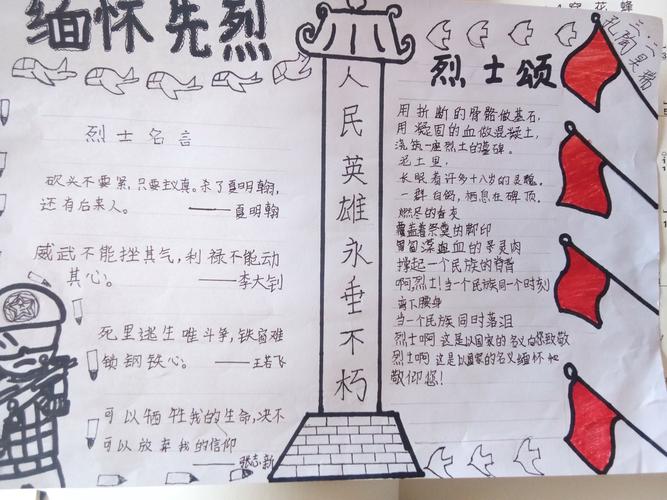 缅怀先烈
烈士名言
砍头不要紧,只要主义真。杀了夏明翰,
还有后来人。——夏明翰
威武不能挫其气,利禄不能动
其心。——李大钊
死里逃生唯斗争,铁窗难
锁钢铁心。——王若飞
可以牺牲我的生命,决不
可以放弃我的信仰
——张志新
人民英雄永垂不朽
烈士颂
用折断的骨骼做基石,
用凝固的血做混凝土,
浇筑一座烈士的墓碑。
泥土里,
长眠着许多十八岁的灵魂。
一群白鸽,栖息在碑顶。
燃尽的香灰
覆盖着祭奠的脚印
血的灵肉
撑起一个民族的脊背
啊,烈士!当一个民族同一个时刻
弯下腰身
当一个民族同时落泪
烈士啊 这是以国家的名义向您致敬
烈士啊 这是以国家的名义缅怀
敬仰您!
三